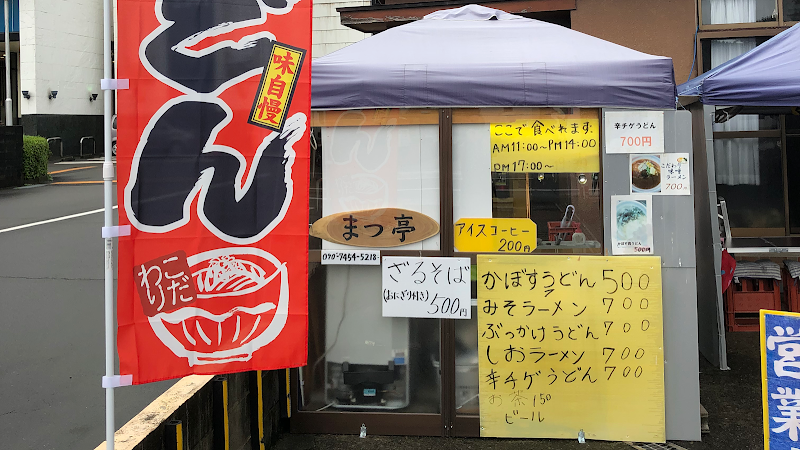 どん
味自慢
こだ
わり
ここで食べれます
AM11:00〜PM14:00
PM17:00〜
辛チゲうどん
700円
こだわり
味噌
ラーメン
700
500円
まつ亭
070-7454-5218
アイスコーヒー
200円
ざるそば
(おにぎり付き)500円
かぼすうどん 500
みそラーメン 700
ぶっかけうどん 700
しおラーメン 700
辛チゲうどん 700
お茶 150
ビール
営業